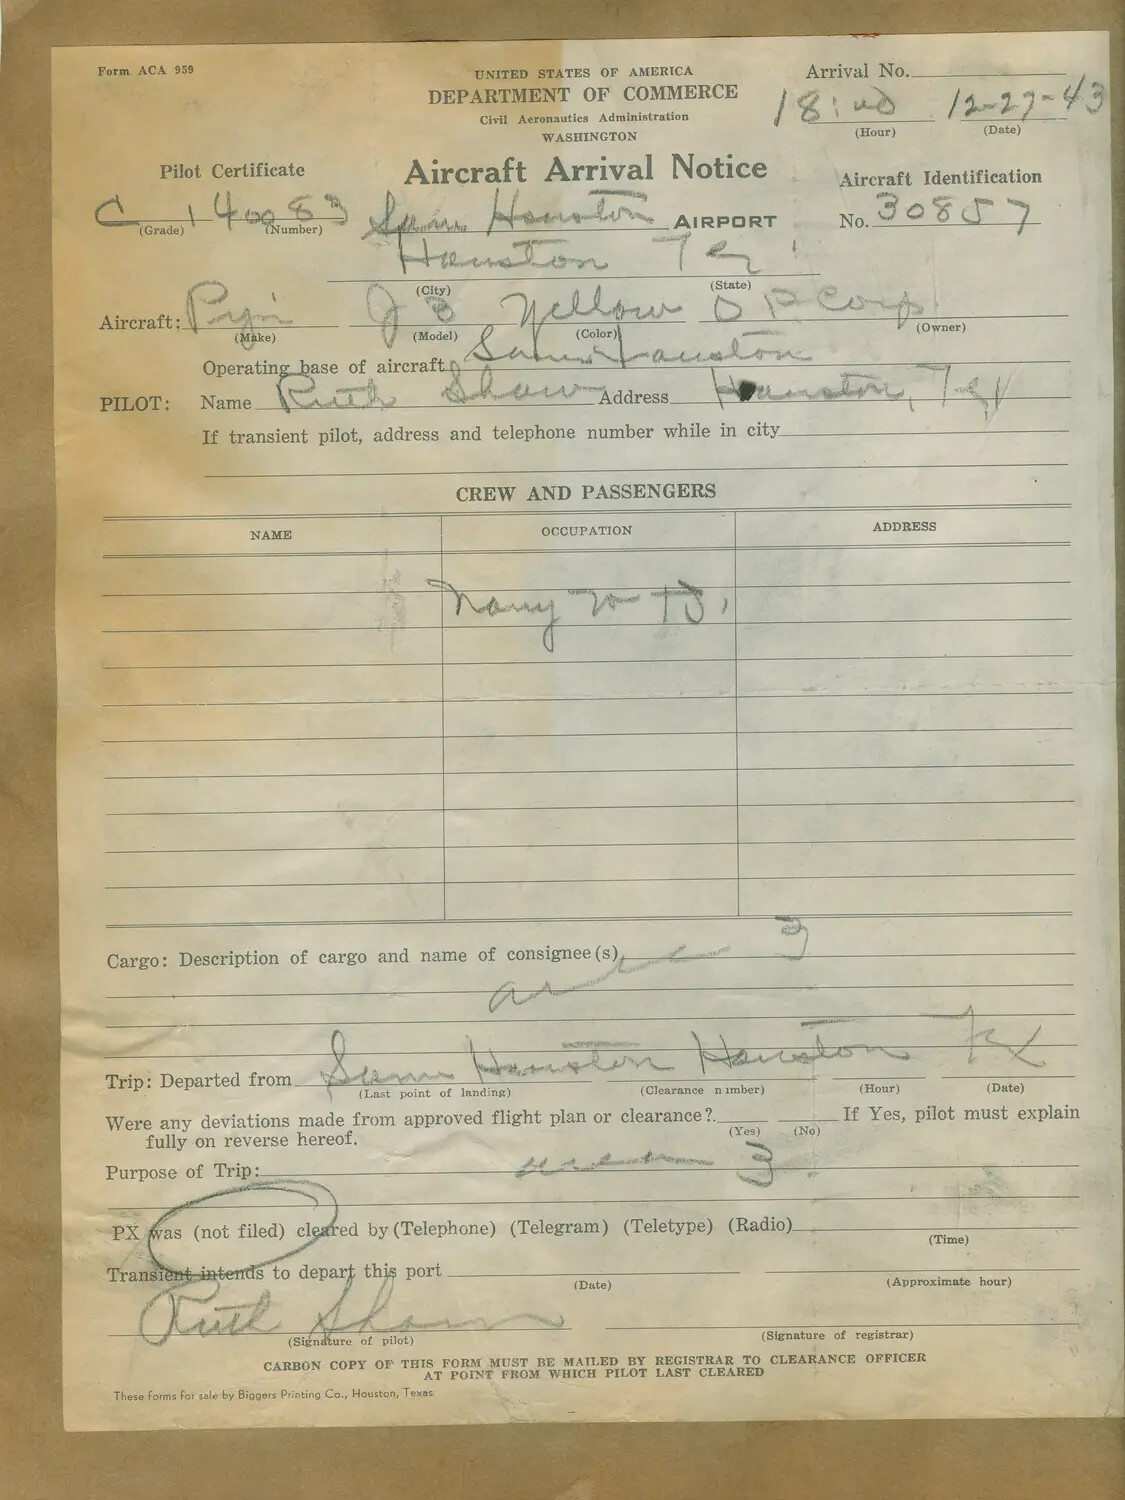 Form ACA 959
UNITED STATES OF AMERICA
DEPARTMENT OF COMMERCE
Civil Aeronautics Administration
WASHINGTON
Arrival No.
12-27-43
(Hour) (Date)
Pilot Certificate
Aircraft Arrival Notice
Aircraft Identification
C 140083
(Grade) (Number)
Sam Houston AIRPORT
No. 30857
Houston Tex
(City) (State)
Aircraft: J 3 Yellow Corp
(Make) (Model) (Color) (Owner)
Operating base of aircraft Sam Houston
PILOT: Name Ruth Shaw Address Houston, Tex
If transient pilot, address and telephone number while in city
CREW AND PASSENGERS
NAME OCCUPATION ADDRESS
Cargo: Description of cargo and name of consignee(s)
Trip: Departed from Sam Houston Houston Tex
(Last point of landing) (Clearance number) (Hour) (Date)
Were any deviations made from approved flight plan or clearance? If Yes, pilot must explain
(Yes) (No)
fully on reverse hereof.
Purpose of Trip:
PX was (not filed) cleared by (Telephone) (Telegram) (Teletype) (Radio)
(Time)
Transient intends to depart this port
(Date) (Approximate hour)
Ruth Shaw
(Signature of pilot) (Signature of registrar)
CARBON COPY OF THIS FORM MUST BE MAILED BY REGISTRAR TO CLEARANCE OFFICER
AT POINT FROM WHICH PILOT LAST CLEARED
These forms for sale by Biggers Printing Co., Houston, Texas